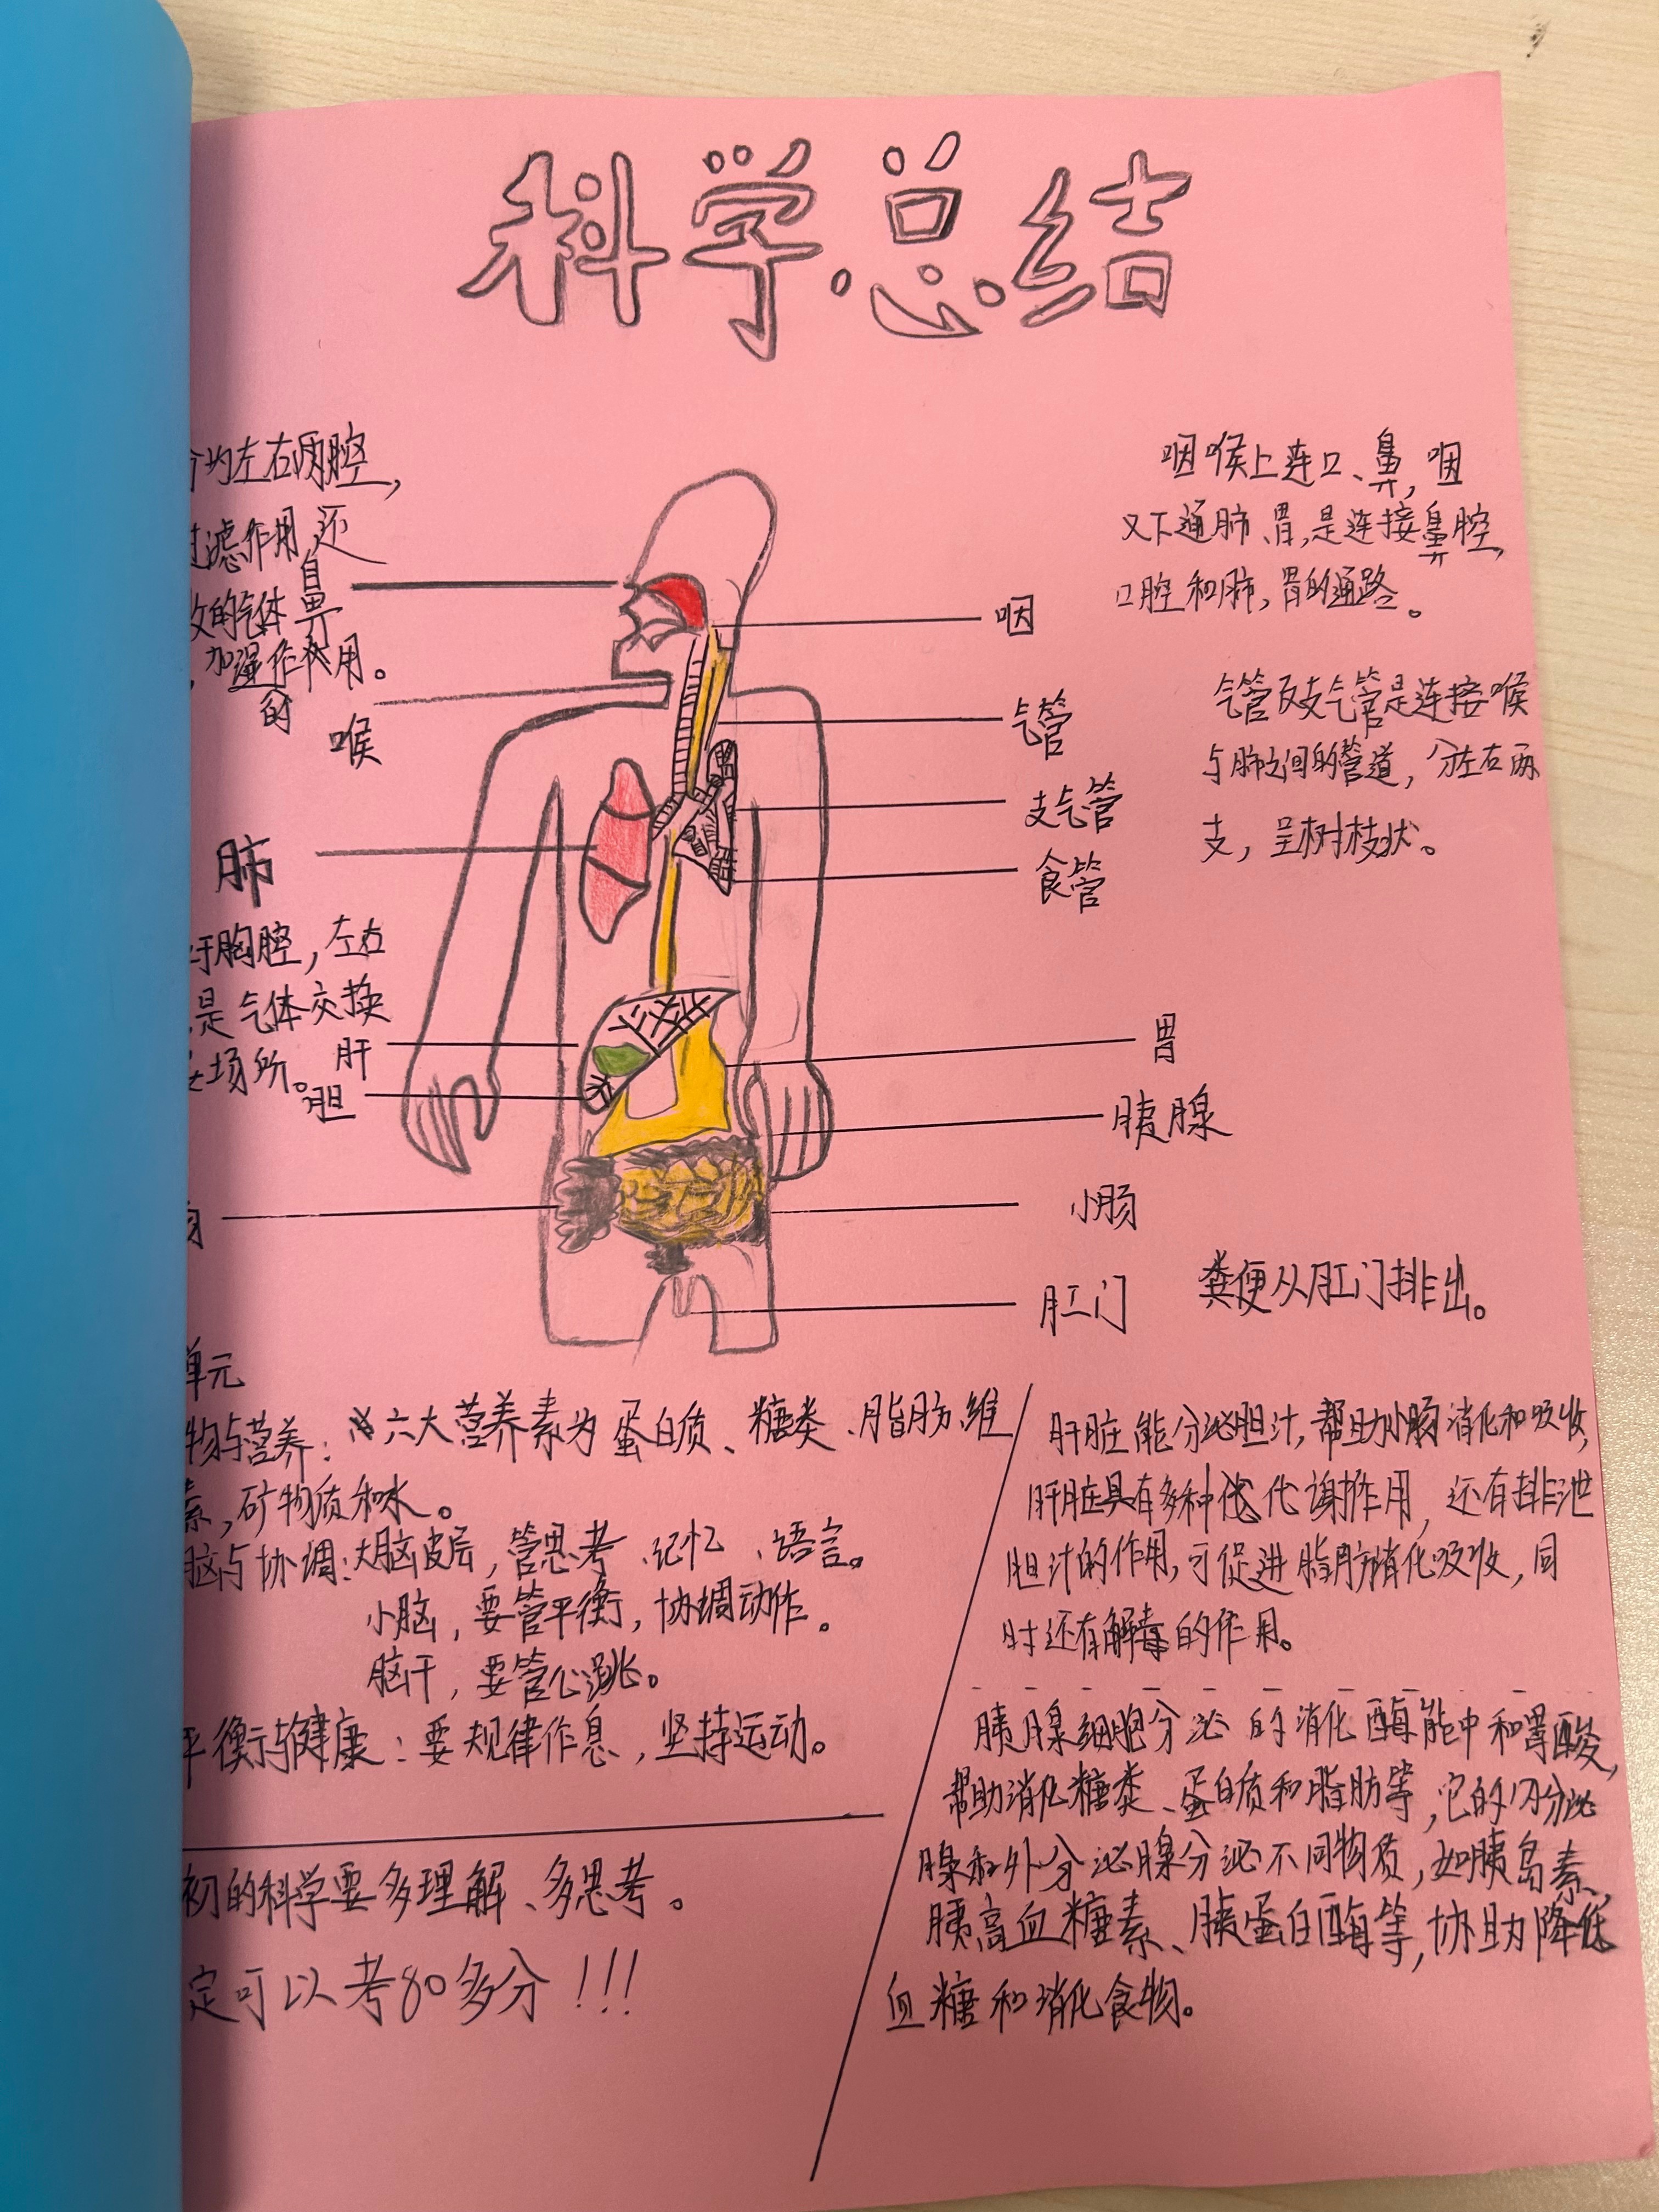 科学总结
均左右两腔,
过滤作用,还
的气体
加湿作用。
的
鼻
喉
肺
于胸腔,左右
是气体交换
场所。
肝
胆
咽
气管
支气管
食管
胃
胰腺
小肠
肛门
咽喉上连口、鼻,咽
又下通肺、胃,是连接鼻腔,
口腔和肺,胃的通路。
气管及支气管是连接喉
与肺之间的管道,分左右两
支,呈树枝状。
粪便从肛门排出。
单元
物与营养:六大营养素为蛋白质、糖类、脂肪、维
素,矿物质和水。
脑与协调:大脑皮层,管思考、记忆、语言。
小脑,要管平衡,协调动作。
脑干,要管心跳。
平衡与健康:要规律作息,坚持运动。
初的科学要多理解、多思考。
定可以考80多分!!!
肝脏能分泌胆汁,帮助小肠消化和吸收,
肝脏具有多种代谢作用,还有排泄
胆汁的作用,可促进脂肪消化吸收,同
时还有解毒的作用。
胰腺细胞分泌的消化酶能中和胃酸,
帮助消化糖类、蛋白质和脂肪等,它的内分泌
腺和外分泌腺分泌不同物质,如胰岛素、
胰高血糖素、胰蛋白酶等,协助降低
血糖和消化食物。